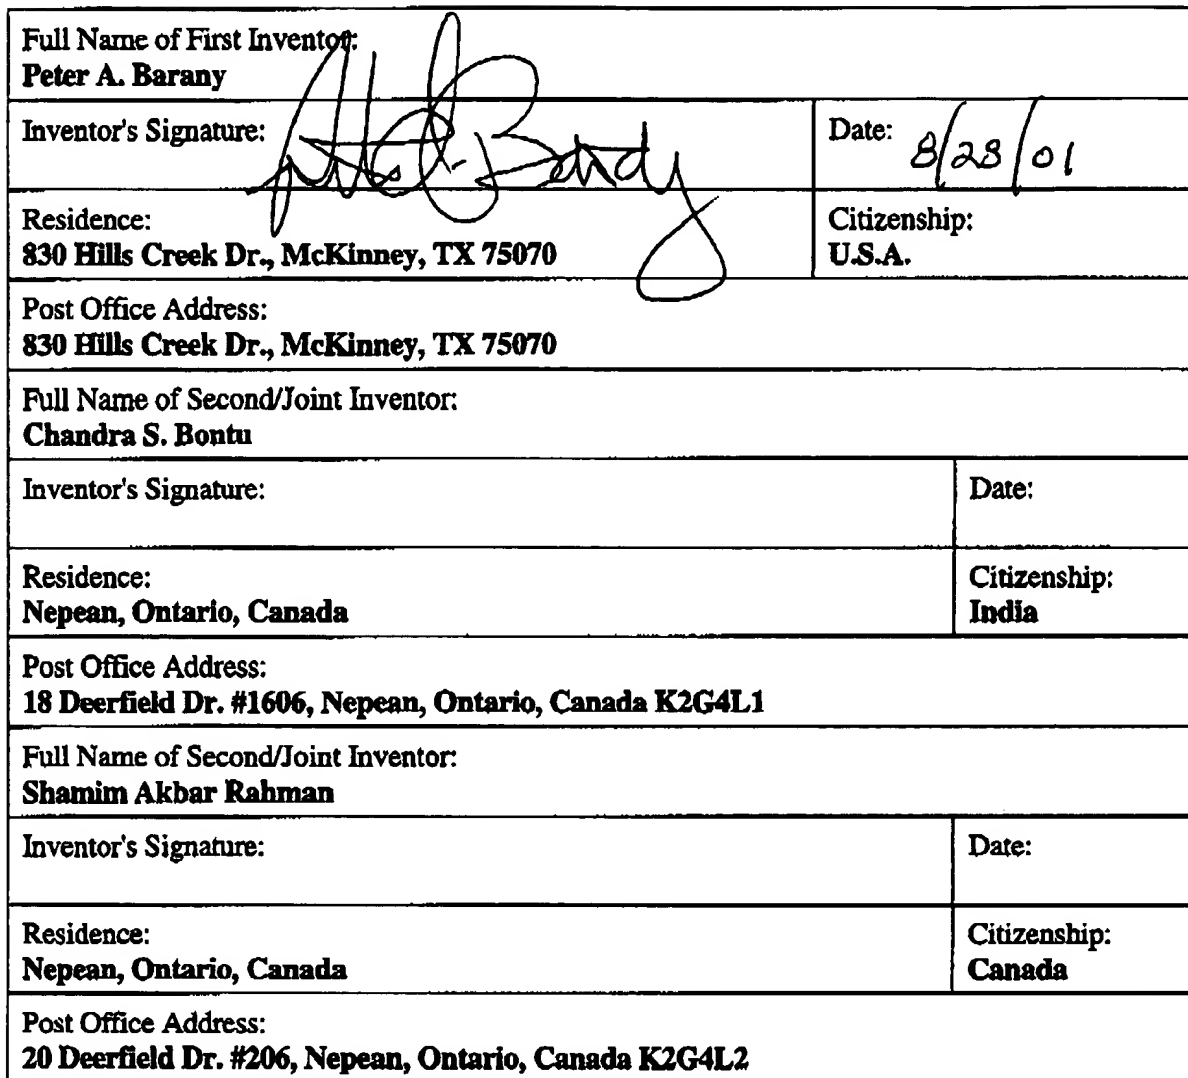 Full Name of First Inventor:
Peter A. Barany
Inventor's Signature:
Date: 8/28/01
Residence:
830 Hills Creek Dr., McKinney, TX 75070
Citizenship:
U.S.A.
Post Office Address:
830 Hills Creek Dr., McKinney, TX 75070
Full Name of Second/Joint Inventor:
Chandra S. Bontu
Inventor's Signature:
Date:
Residence:
Nepean, Ontario, Canada
Citizenship:
India
Post Office Address:
18 Deerfield Dr. #1606, Nepean, Ontario, Canada K2G4L1
Full Name of Second/Joint Inventor:
Shamim Akbar Rahman
Inventor's Signature:
Date:
Residence:
Nepean, Ontario, Canada
Citizenship:
Canada
Post Office Address:
20 Deerfield Dr. #206, Nepean, Ontario, Canada K2G4L2